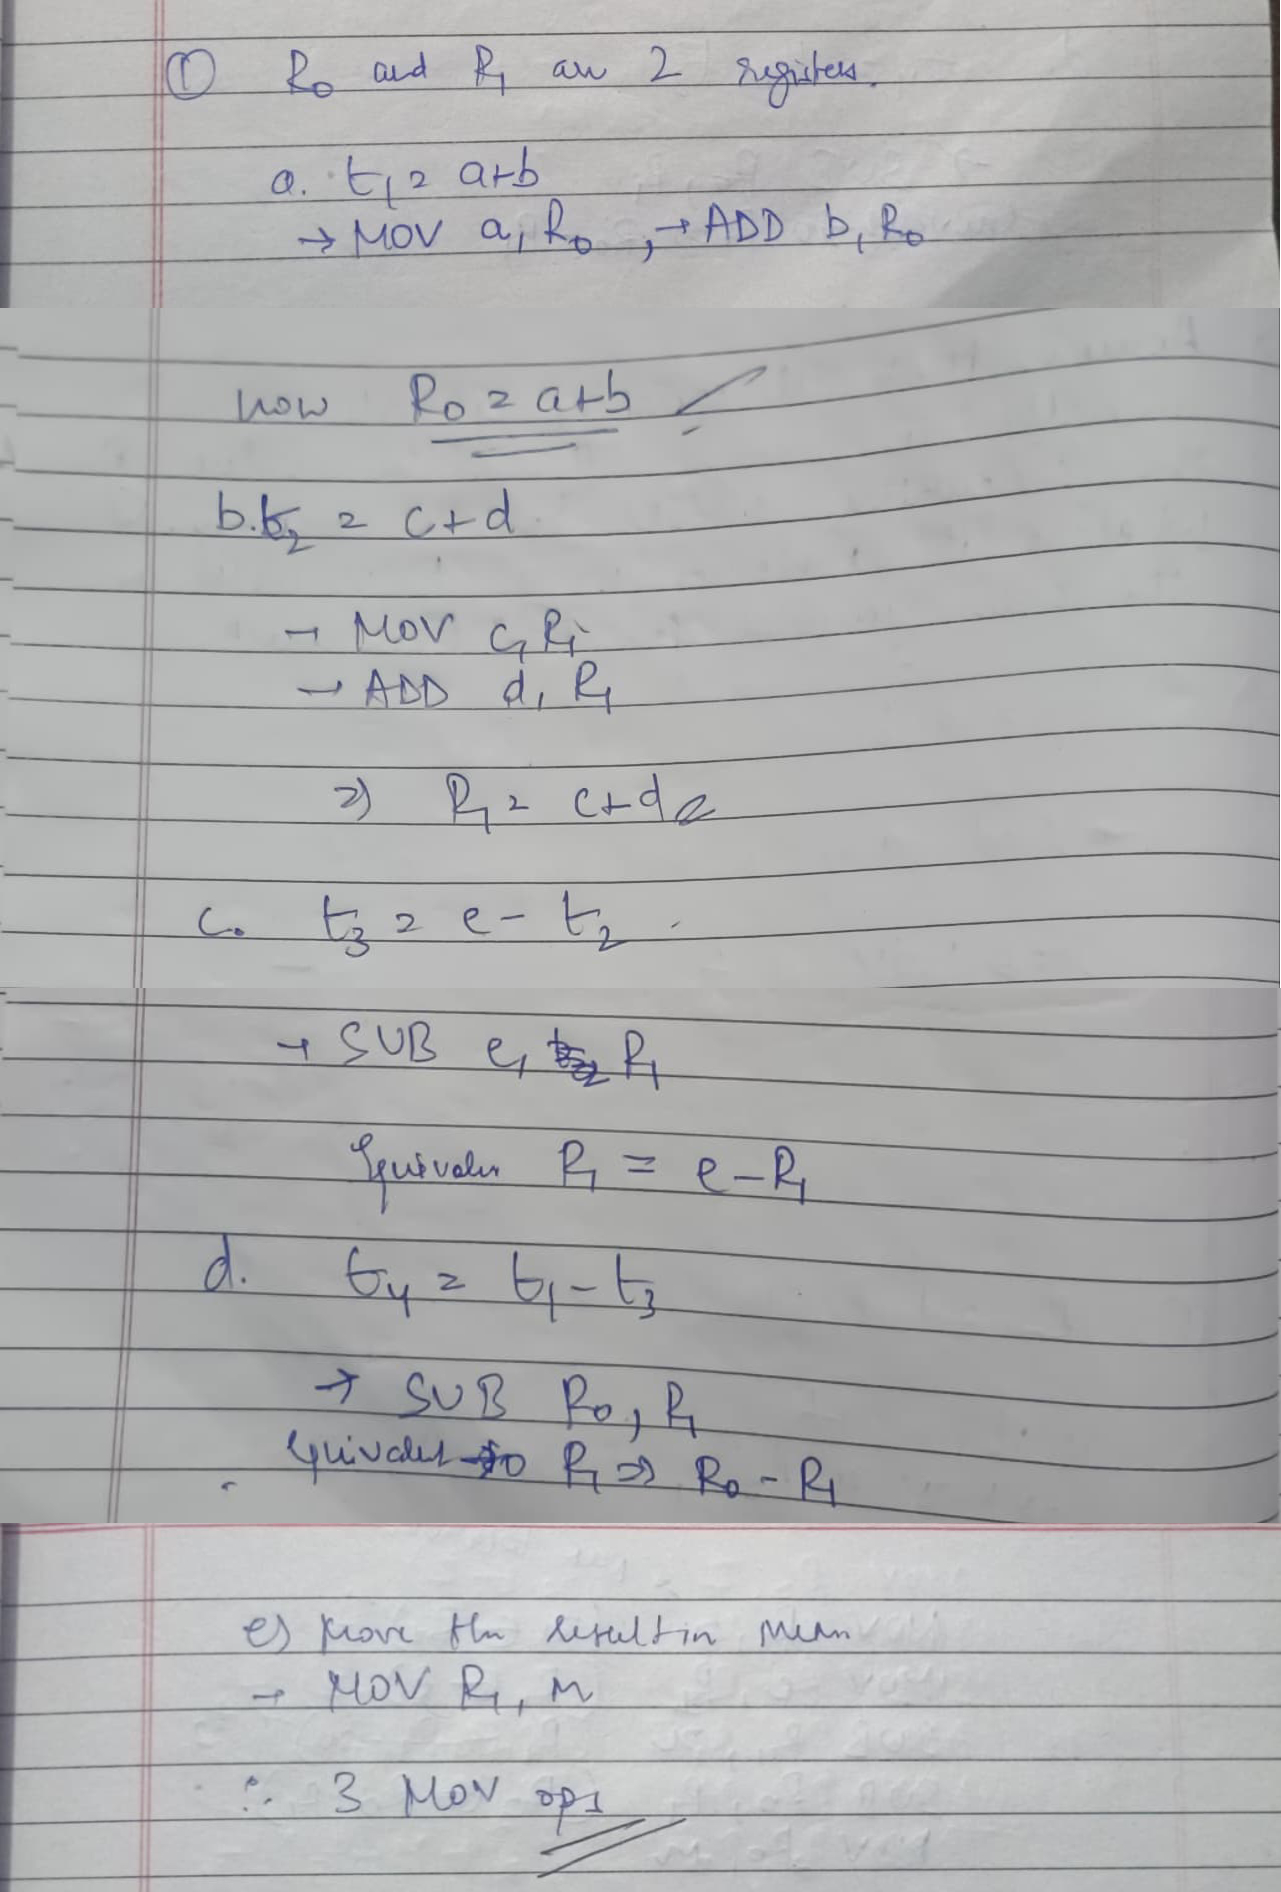 ① R₀ and R₁ are 2 registers.
a. t₁ = a+b
→ MOV a, R₀ , → ADD b, R₀
now R₀ = a+b
b. t₂ = c+d
→ MOV c, R₁
→ ADD d, R₁
⇒ R₁ = c+d
c. t₃ = e - t₂
→ SUB e, R₁
R₁ = e - R₁
d. t₄ = t₁ - t₃
→ SUB R₀, R₁
Equivalent to R₁ ⇒ R₀ - R₁
e) Move the result in mem
→ MOV R₁, m
∴ 3 MOV ops